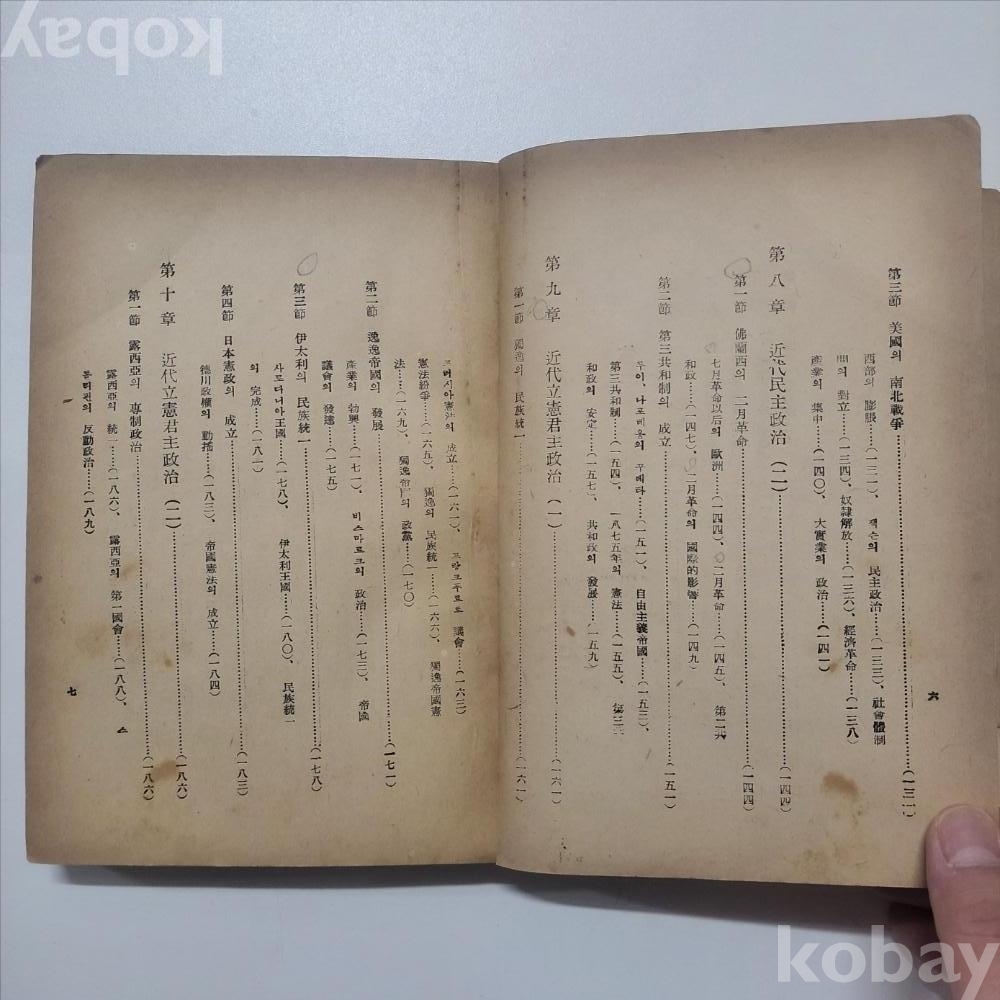 kobay
第三節 美國의 南北戰爭……(一三一)
西部의 膨脹……(一三一)、잭슨의 民主政治……(一三三)、社會體制
間의 對立……(一三四)、奴隷解放……(一三六)、經濟革命……(一三八)
産業의 集中……(一四〇)、大實業의 政治……(一四一)
第八章 近代民主政治(二)……(一四四)
第一節 佛蘭西의 二月革命……(一四四)
七月革命以后의 歐洲……(一四四)、二月革命……(一四五)、第二共
和政……(一四七)、二月革命의 國際的影響……(一四九)
第二節 第三共和制의 成立……(一五一)
루이、나포레옹의 쿠데타……(一五一)、自由主義帝國……(一五三)、
第三共和制……(一五四)、一八七五年의 憲法……(一五五)、第三共
和政의 安定……(一五七)、共和政의 發展……(一五九)
第九章 近代立憲君主政治(一)……(一六一)
第一節 獨逸의 民族統一……(一六一)
六
프러시아憲法의 成立……(一六一)、프랑크푸르트 議會……(一六三)
憲法紛爭……(一六五)、獨逸의 民族統一……(一六六)、獨逸帝國憲
法……(一六九)、獨逸帝國의 政黨……(一七〇)
第二節 獨逸帝國의 發展……(一七一)
産業의 勃興……(一七一)、비스마르크의 政治……(一七三)、帝國
議會의 發達……(一七五)
第三節 伊太利의 民族統一……(一七八)
사르디니아王國……(一七八)、伊太利王國……(一八〇)、民族統一
의 完成……(一八二)
第四節 日本憲政의 成立……(一八三)
德川政權의 動搖……(一八三)、帝國憲法의 成立……(一八四)
第十章 近代立憲君主政治(二)……(一八六)
第一節 露西亞의 專制政治……(一八六)
露西亞의 統一……(一八六)、露西亞의 第一國會……(一八八)、스
톨리핀의 反動政治……(一八九)
七
kobay